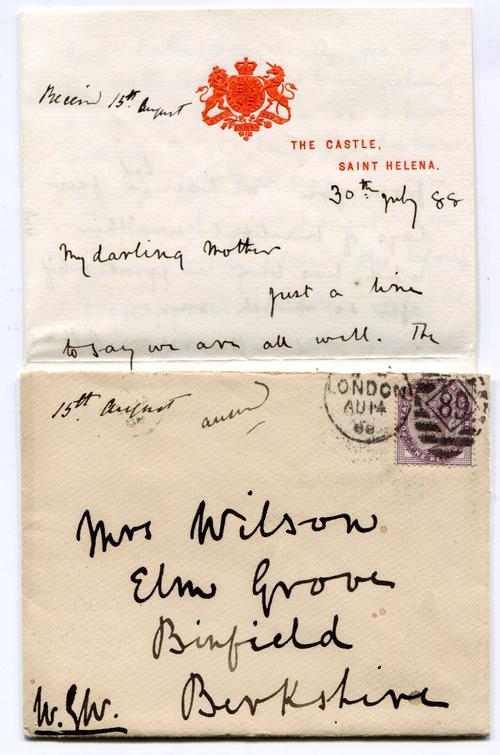 15th August
THE CASTLE,
SAINT HELENA.
30th July 88
My darling Mother
just a line
to say we are all well. The
15th August
LONDON
AU 14
88
89
Mrs Wilson
Elm Grove
Binfield
Berkshire
W.G.W.